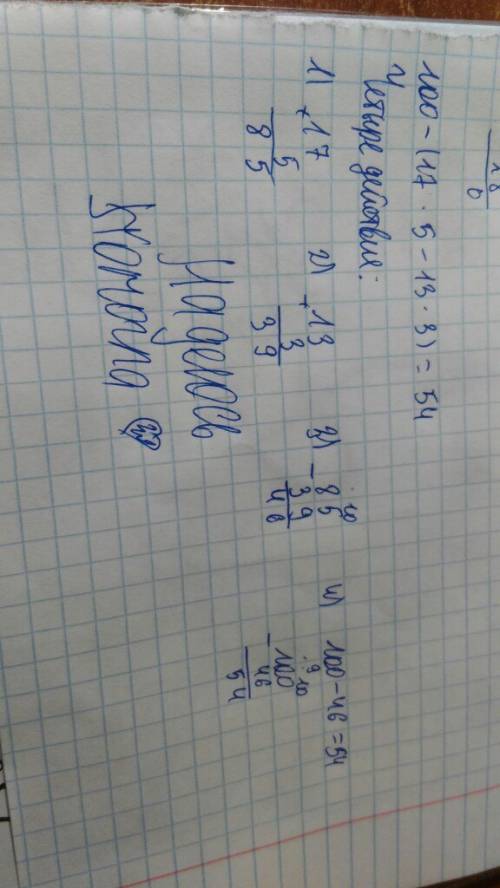 18
0
100 - (17 · 5 - 13 · 3) = 54
Четыре действия:
1) 17
×
5
85
2) 13
×
3
39
3) 85
10
-
39
46
4) 100 - 46 = 54
9 10
-100
46
54
Надеюсь
помогла